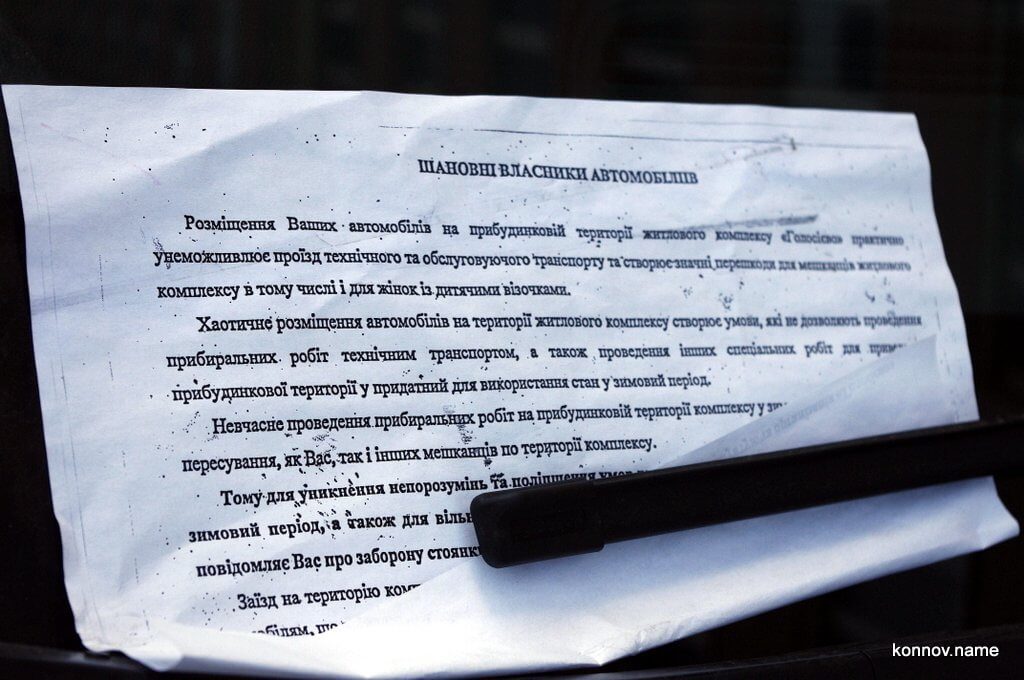 ШАНОВНІ ВЛАСНИКИ АВТОМОБІЛІВ
Розміщення Ваших автомобілів на прибудинковій території житлового комплексу «Голосієво» практично
унеможливлює проїзд технічного та обслуговуючого транспорту та створює значні перешкоди для мешканців житлового
комплексу в тому числі і для жінок із дитячими візочками.
Хаотичне розміщення автомобілів на території житлового комплексу створює умови, які не дозволяють проведення
прибиральних робіт технічним транспортом, а також проведення інших спеціальних робіт для
прибудинкової території у придатний для використання стан у зимовий період.
Невчасне проведення прибиральних робіт на прибудинковій території комплексу у
пересування, як Вас, так і інших мешканців по території комплексу.
Тому для уникнення непорозумінь та поліпшення умов
зимовий період, а також для
повідомляє Вас про заборону
Заїзд на територію
konnov.name